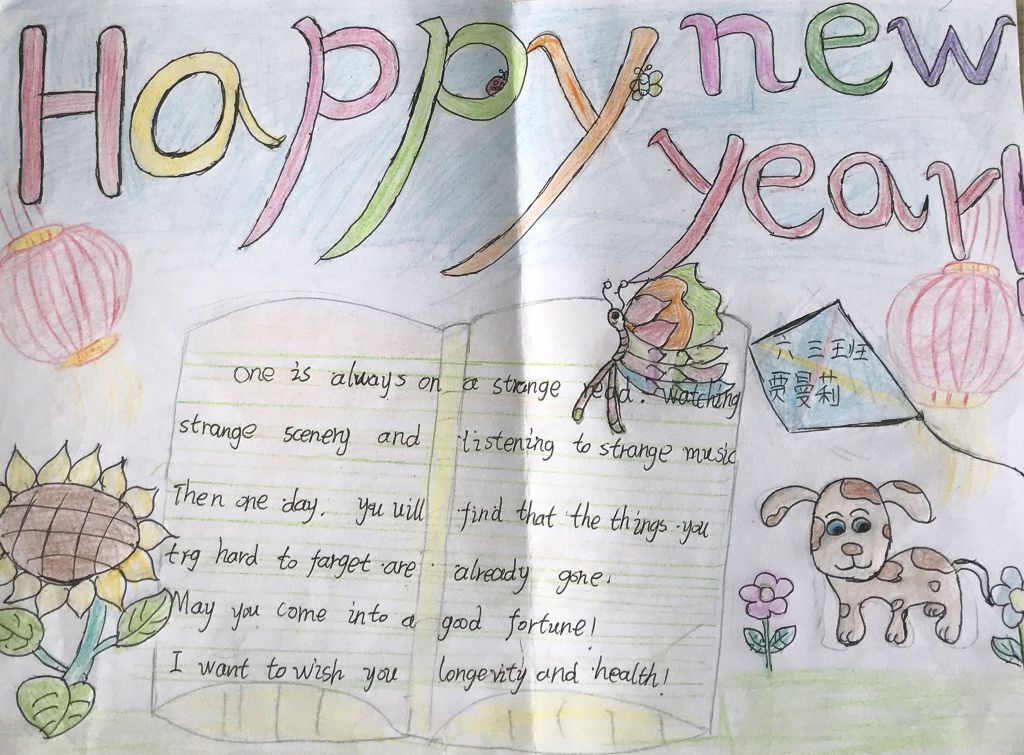 Happy new
year!
One is always on a strange read. watching
strange scenery and listening to strange music
Then one day. you will find that the things you
try hard to farget are already gone.
May you come into a good fortune!
I want to wish you longevity and health!
六三班
贾曼莉